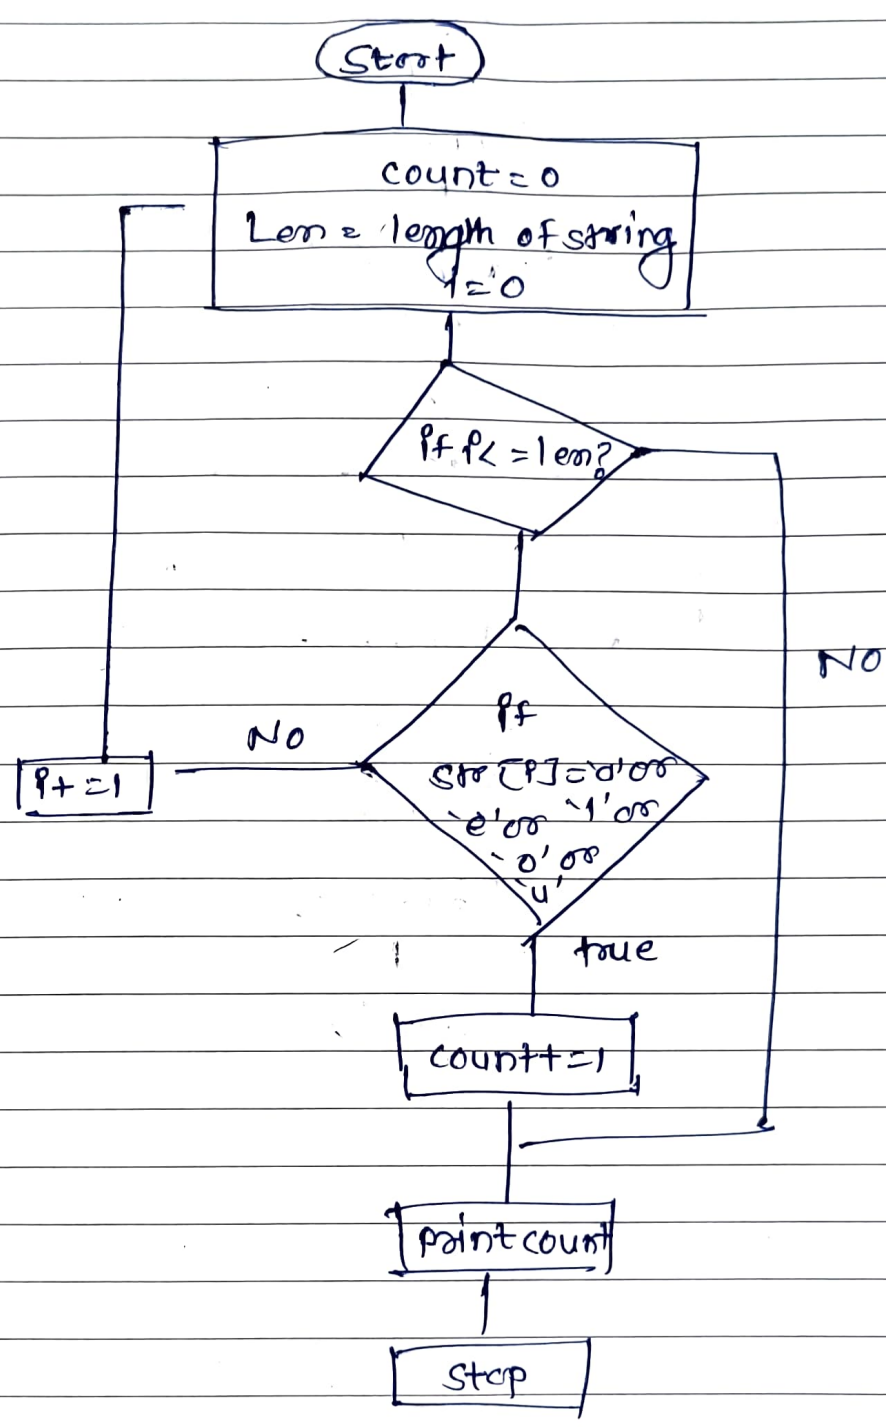 Start
count = 0
Len = length of string
i = 0
if i < = len?
NO
if
NO
str [i] = 'a' or
i + = 1
'e' or 'i' or
'o' or
'u'
true
count + = 1
print count
Stop